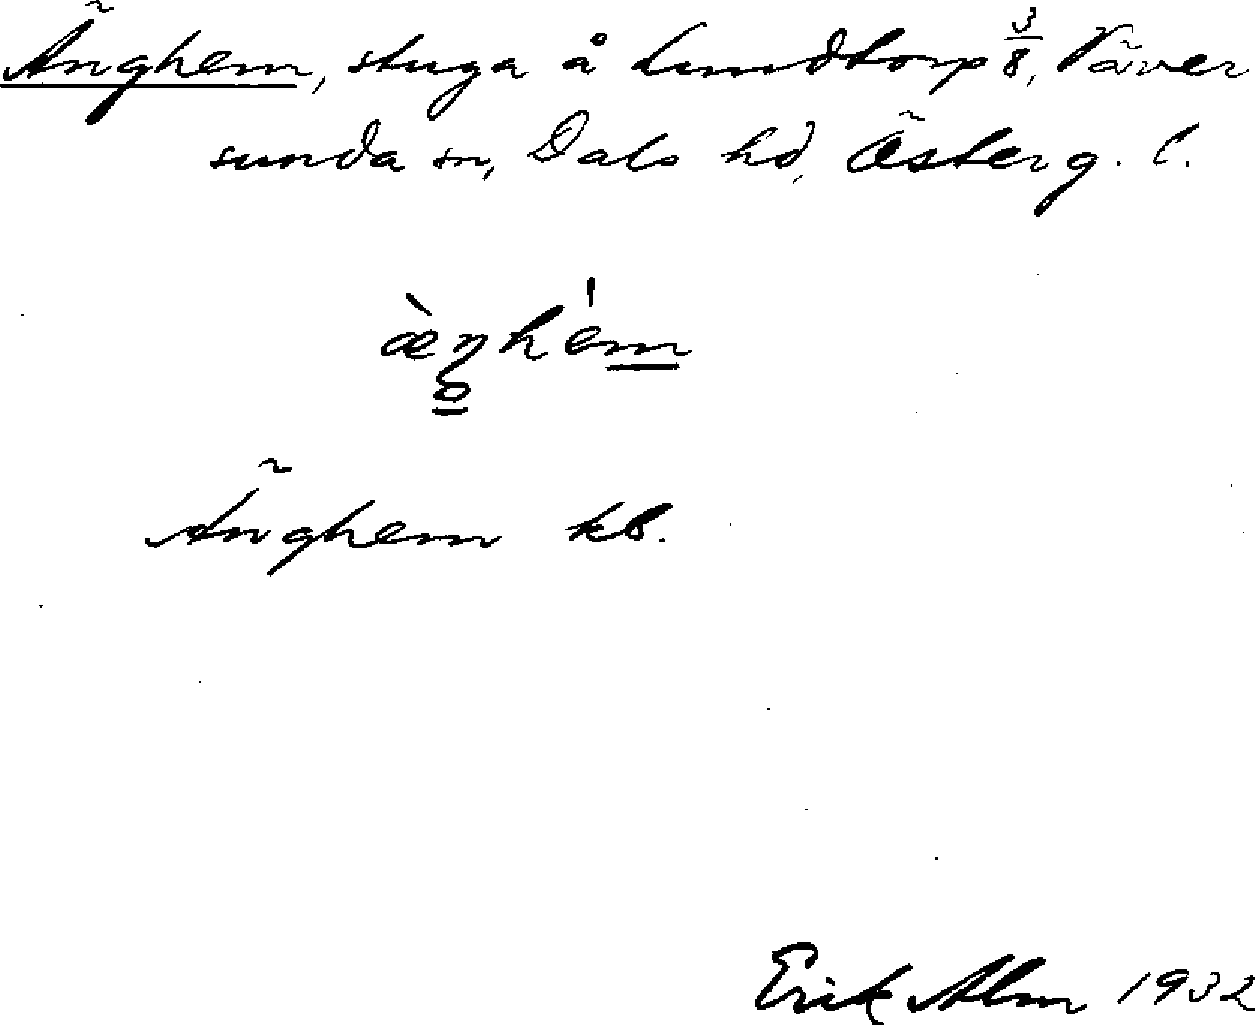 Änghem, stuga å Lundtorp 3/8, Väver
sunda sn, Dals hd, Österg. l.
æ̀ŋhém
Änghem kb.
Erik Alm 1932